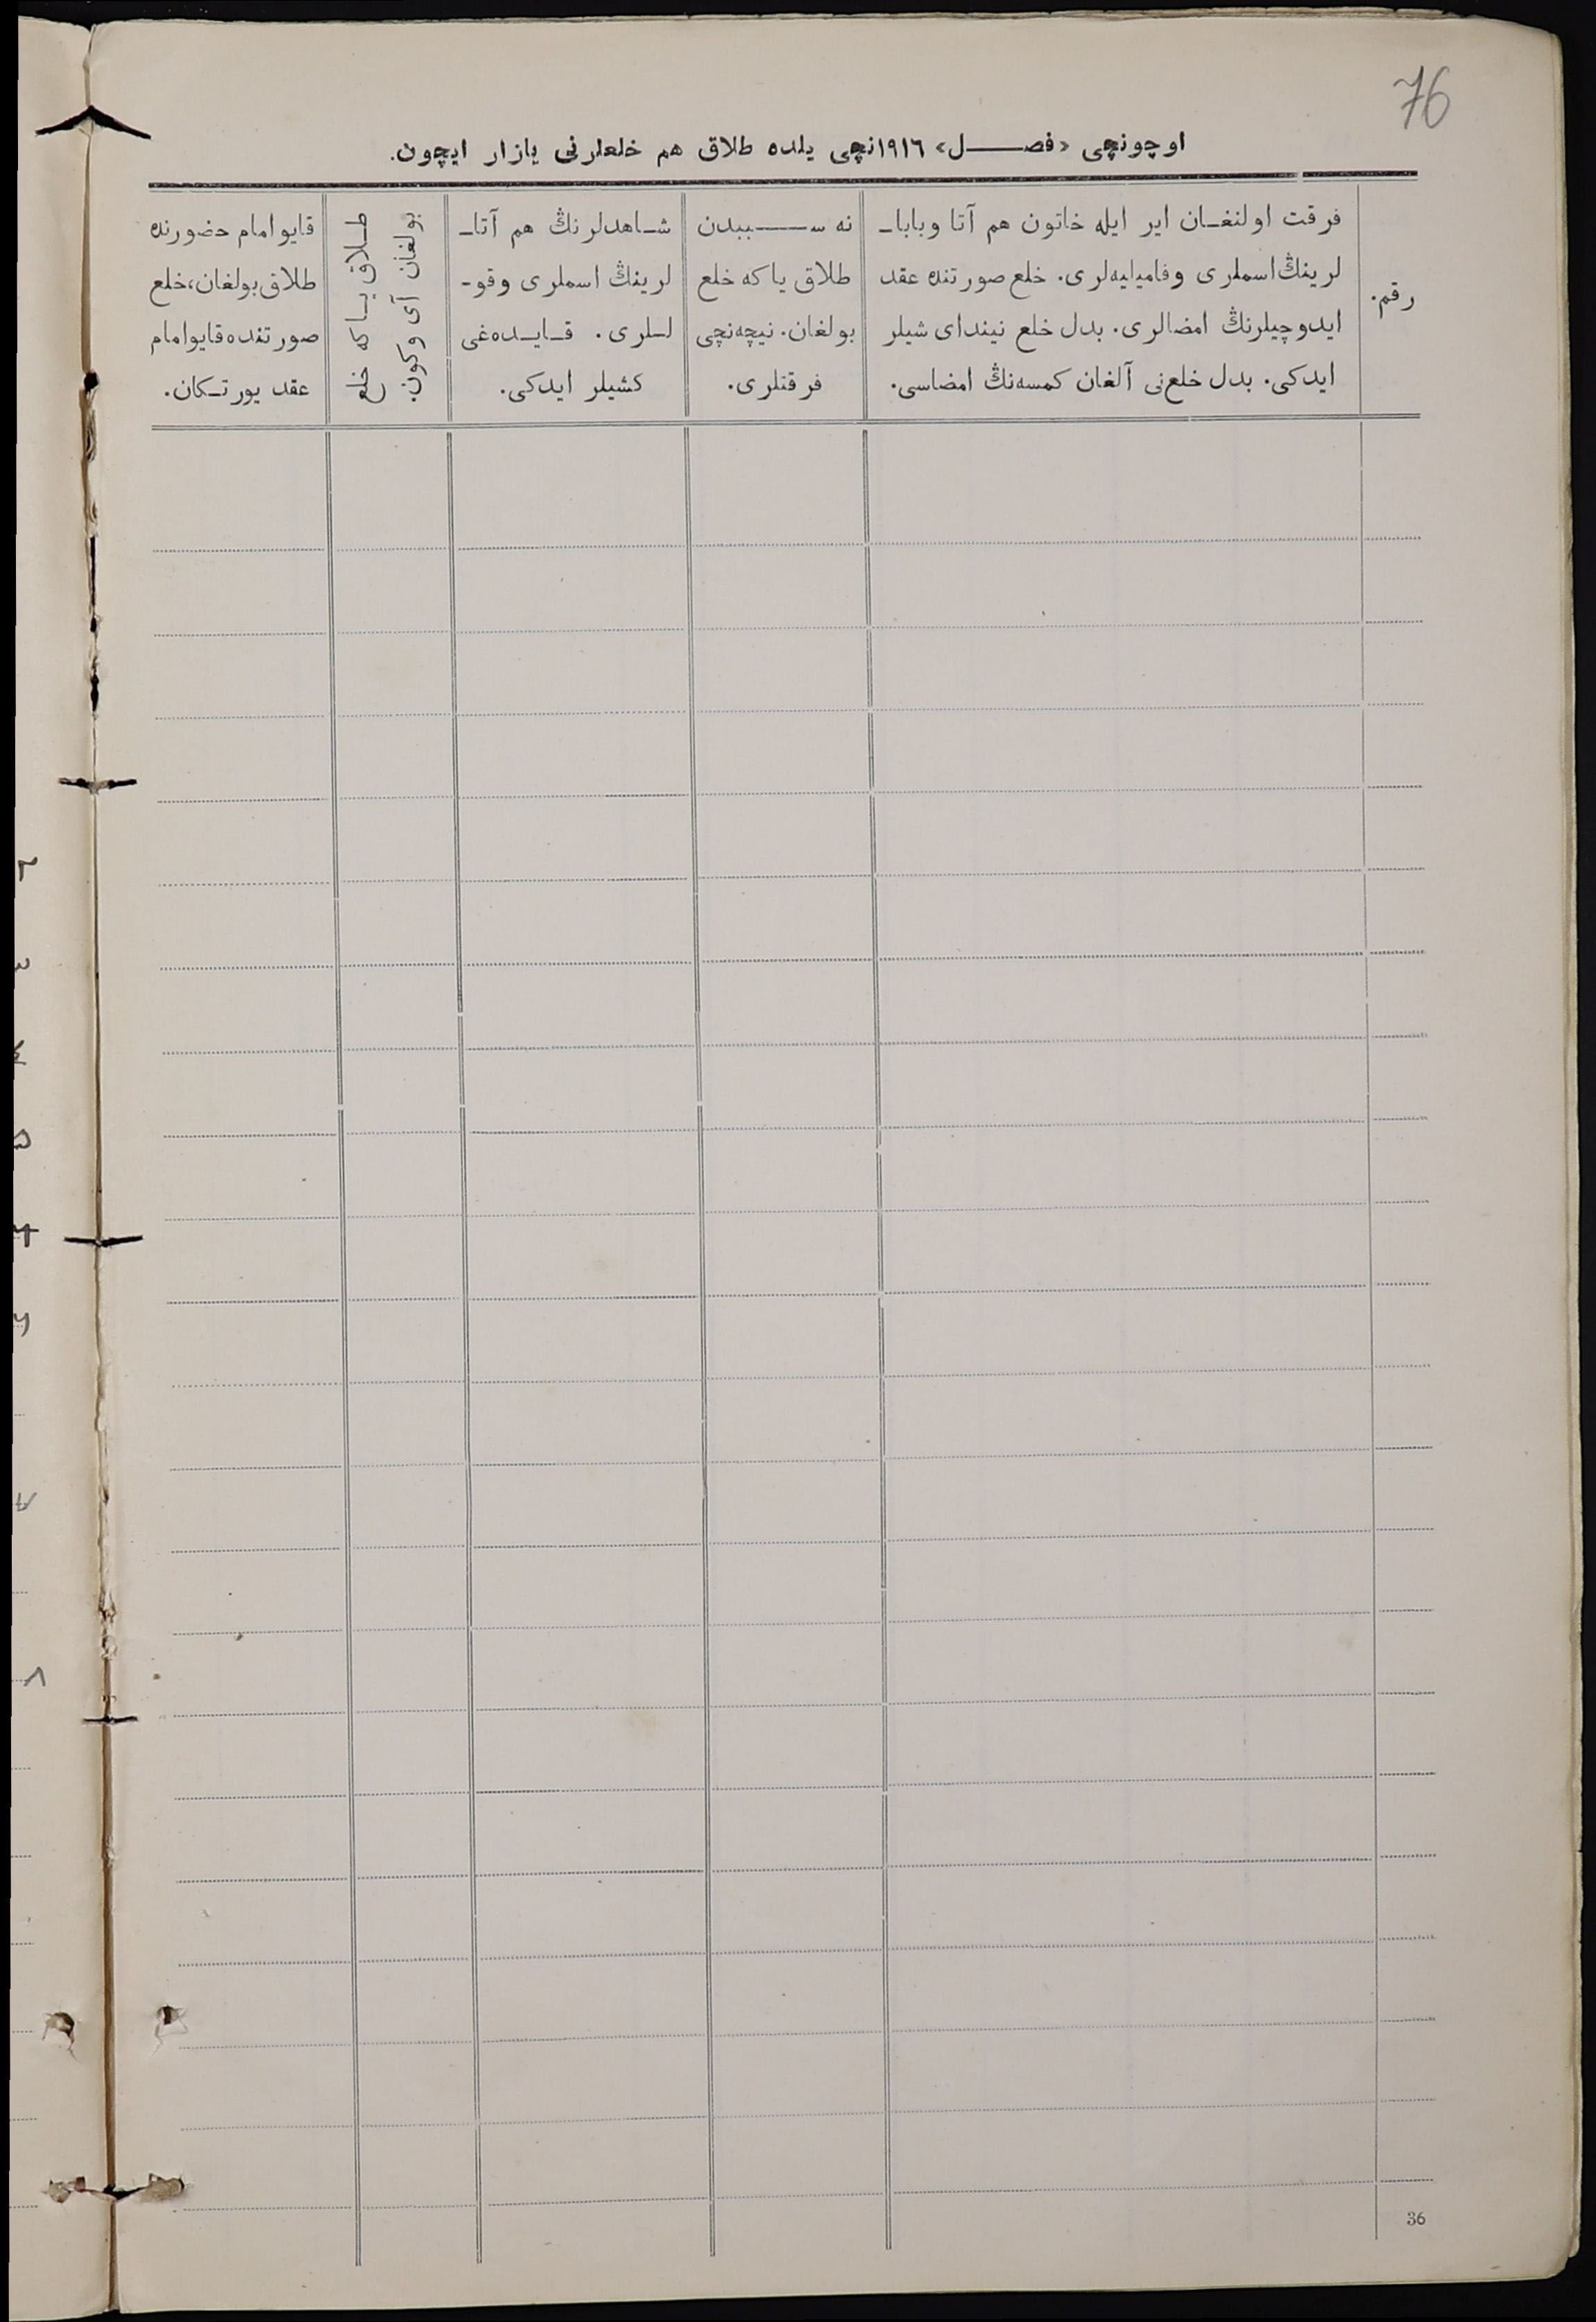 76
اوچونچی «فصل» ١٩١٦نچی یلده طلاق هم خلعلرنی یازار ایچون.
رقم.
فرقت اولنغان ایر ایله خاتون هم آتا وبابا-
لرینڭ اسملری وفامیلیه‌لری. خلع صورتنده عقد
ایدوچیلرنڭ امضالری. بدل خلع نیندای شیلر
ایدکی. بدل خلع‌نی آلغان کمسه‌نڭ امضاسی.
نه سببدن
طلاق یا که خلع
بولغان. نیچه‌نچی
فرقتلری.
شاهدلرنڭ هم آتا-
لرینڭ اسملری وقو-
للری. قایده‌غی
کشیلر ایدکی.
طلاق یا که خلع
بولغان آی وکون
قایو امام حضورنده
طلاق بولغان، خلع
صورتنده قایو امام
عقد یورتکان.
36